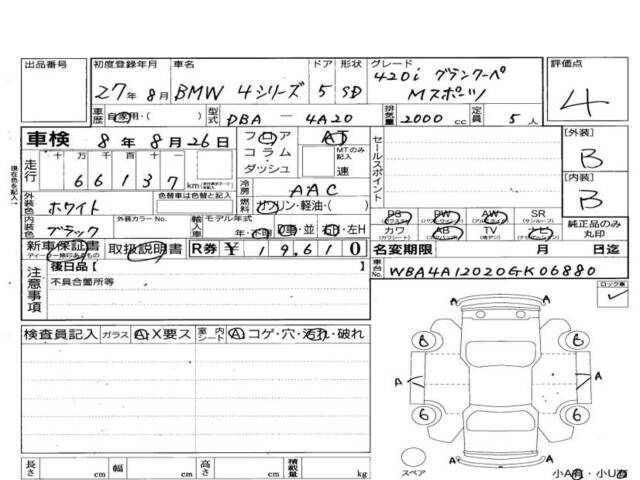 出品番号 初度登録年月 車名 ドア 形状 グレード 評価点
27年 8月 BMW 4シリーズ 5 SD 420i グランクーペ
Mスポーツ
4
車歴 自家用・( ) 型式 DBA — 4A20 排気量 2000 cc 定員 5 人
車検 8年 8月 26日 フロア AT
コラム・ MTのみ記入
ダッシュ 速
セールスポイント
[外装]
B
[内装]
B
走行 十 万 千 百 十
66137 km
現在色を記入→
冷房 AAC
外装色 ホワイト 色替車は元色記入( )
燃料 ガソリン・軽油・( )
内装色 ブラック 外柄カラーNo. 輸入車 モデル年式
年・不明 D車 並 右・左H
PS AW SR
(パワステ) (サンルーフ)
カワ AB TV ナビ
(カワシート) (エアバッグ) (地デジ)
純正品のみ丸印
新車保証書 取扱説明書 R券 ¥19,610
名変期限 月 日迄
車台No. WBA4A12020GK06880
注意事項 後日品【 】
不具合箇所等
ロック車
検査員記入 ガラス A・X要ス 室内シート A コゲ・穴・汚れ・破れ
A
6 6
A A
6 6
スペア A 小A有・小U有
長さ cm 幅 cm 高さ cm 積載量 kg